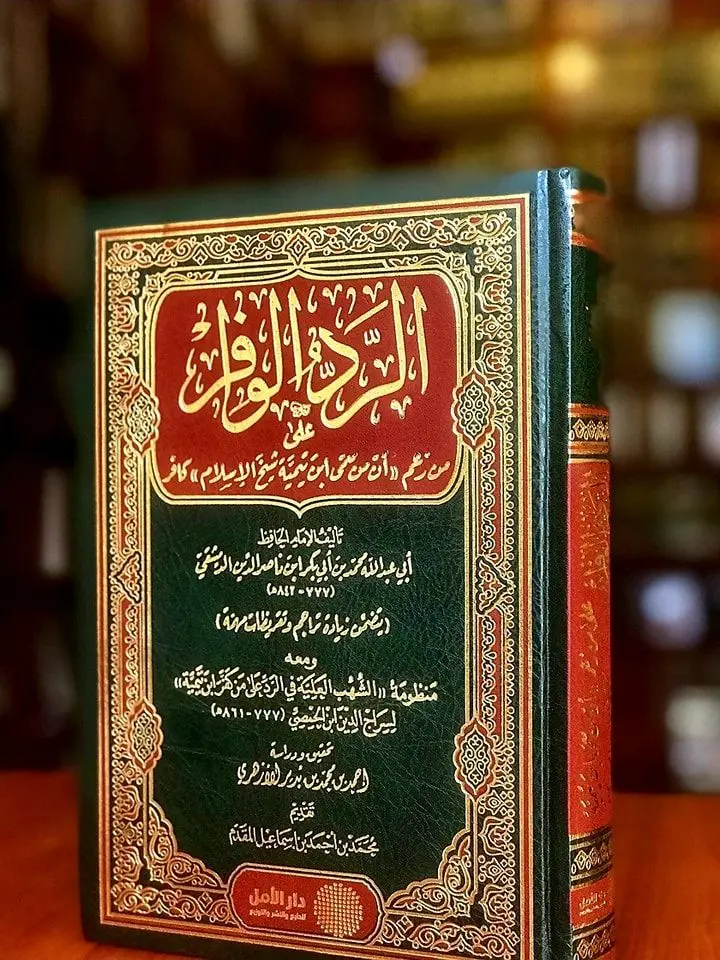 الرد الوافر
على
من زعم «أن من سمى ابن تيمية شيخ الإسلام» كافر
تأليف الإمام الحافظ
أبي عبد الله محمد بن أبي بكر ابن ناصر الدين الدمشقي
(٧٧٧-٨٤٢هـ)
(يتضمن زيادة تراجم وتقريظات مهمة)
ومعه
منظومة «الشهب العلية في الرد على من كفر ابن تيمية»
لسراج الدين ابن الحمصي (٧٧٧-٨٦١هـ)
تحقيق ودراسة
أحمد بن محمد بن بدير الأزهري
تقديم
محمد بن أحمد بن إسماعيل المقدم
دار الأمل
للطبع والنشر والتوزيع